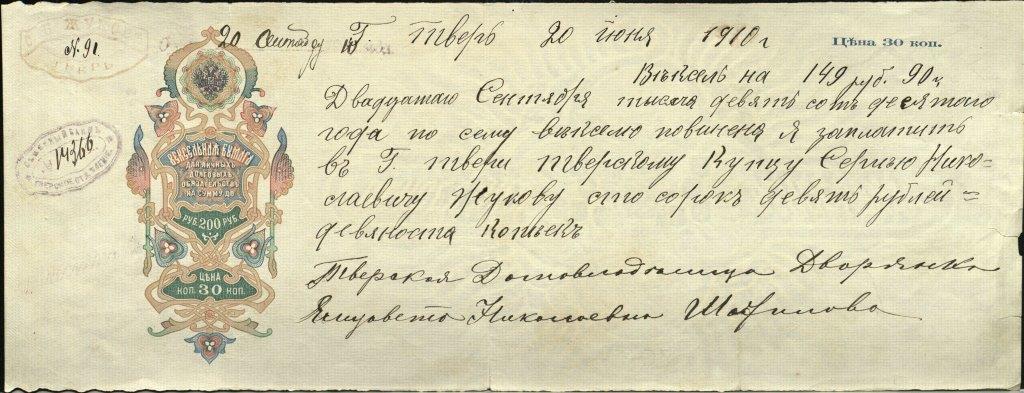 № 91
ТВЕРЬ
20 Сентября
Г. Тверь 20 июня 1910 г
Цѣна 30 коп.
Вѣксель на 149 руб. 90 к
Двадцатаго Сентября тысяча девять сотъ десятаго
года по сему вѣкселю повинена я заплатить
въ Г. Твери тверскому Купцу Сергѣю Нико=
лаевичу Жукову сто сорокъ девять рублей=
девяноста копѣекъ
Тверская Домовладѣлица Дворянка
Елизавета Николаевна
14366
ВЕКСЕЛЬНАЯ БУМАГА
ДЛЯ ЛИЧНЫХЪ
ДОЛГОВЫХЪ
ОБЯЗАТЕЛЬСТВЪ
НА СУММУ ДО
РУБ. 200 РУБ.
ЦѢНА
КОП. 30 КОП.